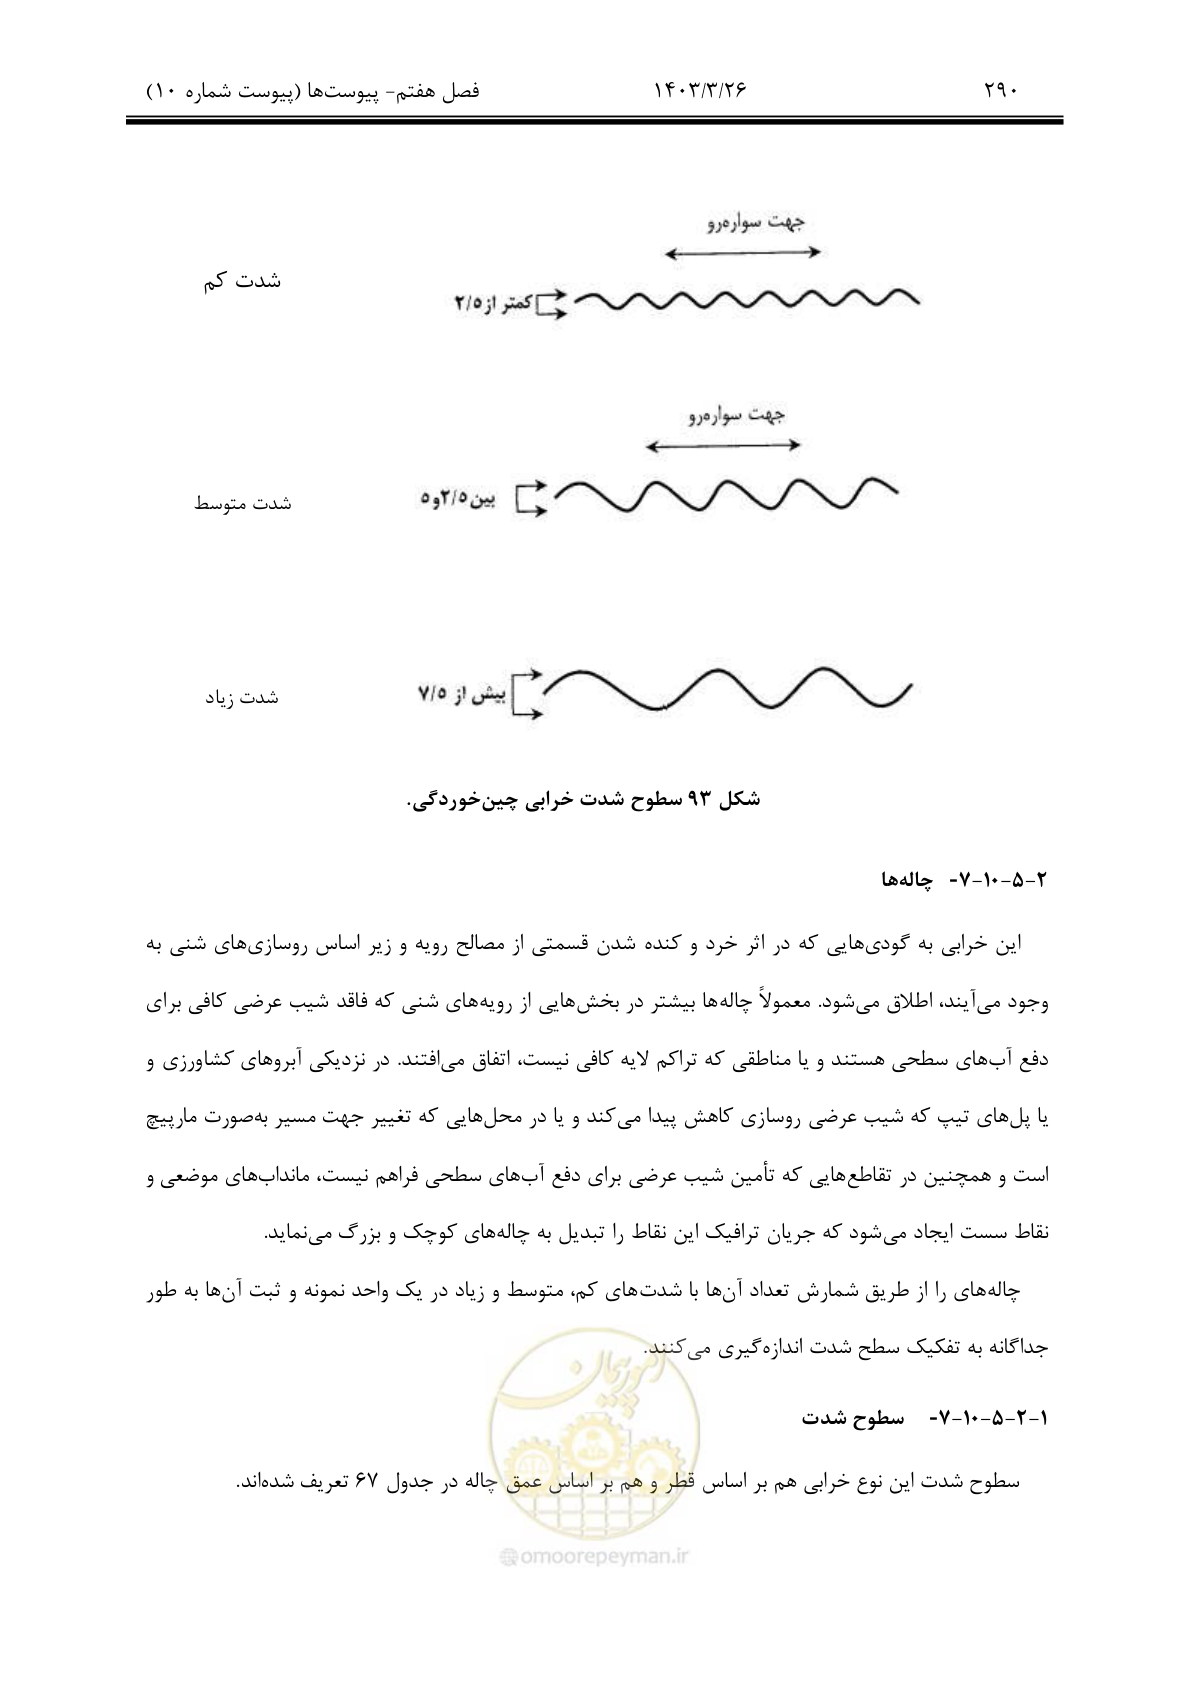 ۲۹۰ ۱۴۰۳/۳/۲۶ فصل هفتم- پیوست‌ها (پیوست شماره ۱۰)
جهت سواره‌رو
شدت کم
کمتر از ۲/۵
جهت سواره‌رو
بین ۲/۵ و ۵
شدت متوسط
بیش از ۷/۵
شدت زیاد
شکل ۹۳ سطوح شدت خرابی چین‌خوردگی.
۷-۱۰-۵-۲- چاله‌ها
این خرابی به گودی‌هایی که در اثر خرد و کنده شدن قسمتی از مصالح رویه و زیر اساس روسازی‌های شنی به
وجود می‌آیند، اطلاق می‌شود. معمولاً چاله‌ها بیشتر در بخش‌هایی از رویه‌های شنی که فاقد شیب عرضی کافی برای
دفع آب‌های سطحی هستند و یا مناطقی که تراکم لایه کافی نیست، اتفاق می‌افتند. در نزدیکی آبروهای کشاورزی و
یا پل‌های تیپ که شیب عرضی روسازی کاهش پیدا می‌کند و یا در محل‌هایی که تغییر جهت مسیر به‌صورت مارپیچ
است و همچنین در تقاطع‌هایی که تأمین شیب عرضی برای دفع آب‌های سطحی فراهم نیست، مانداب‌های موضعی و
نقاط سست ایجاد می‌شود که جریان ترافیک این نقاط را تبدیل به چاله‌های کوچک و بزرگ می‌نماید.
چاله‌های را از طریق شمارش تعداد آن‌ها با شدت‌های کم، متوسط و زیاد در یک واحد نمونه و ثبت آن‌ها به طور
جداگانه به تفکیک سطح شدت اندازه‌گیری می‌کنند.
۷-۱۰-۵-۲-۱- سطوح شدت
سطوح شدت این نوع خرابی هم بر اساس قطر و هم بر اساس عمق چاله در جدول ۶۷ تعریف شده‌اند.
امور پیمان
@omoorepeyman.ir